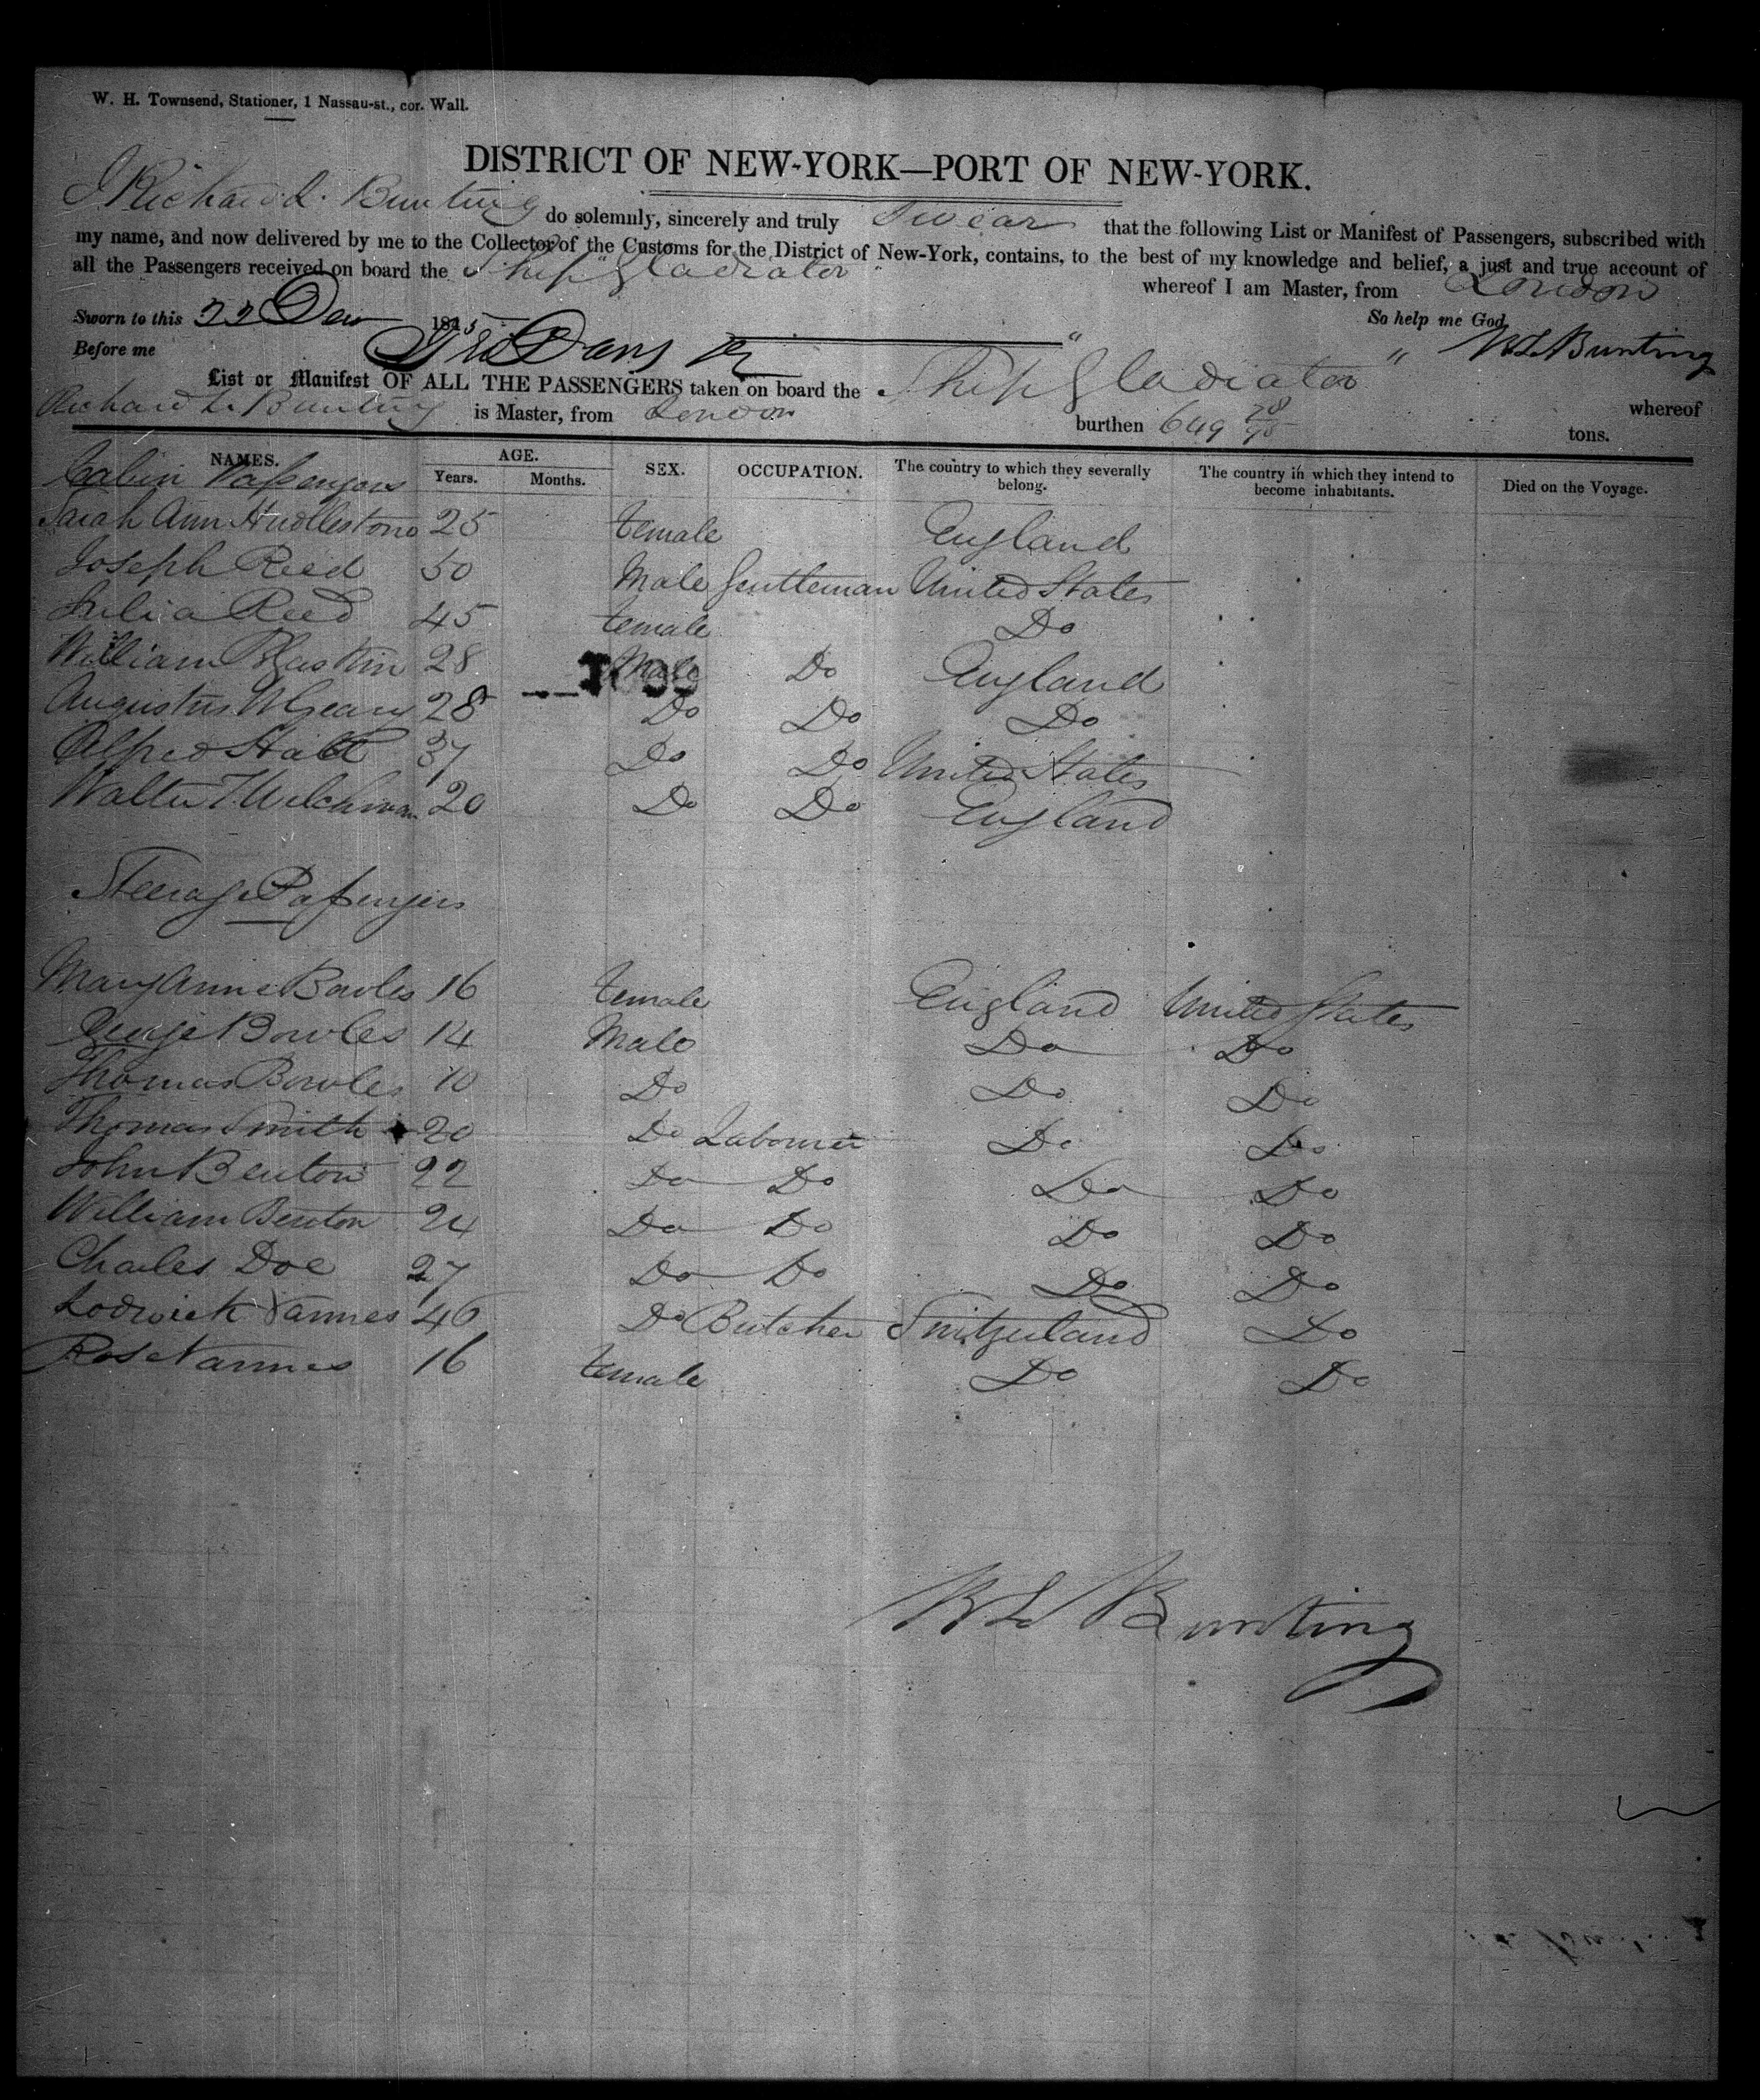 W. H. Townsend, Stationer, 1 Nassau-st., cor. Wall.
DISTRICT OF NEW-YORK—PORT OF NEW-YORK.
I Richard L. Bunting do solemnly, sincerely and truly Swear that the following List or Manifest of Passengers, subscribed with
my name, and now delivered by me to the Collector of the Customs for the District of New-York, contains, to the best of my knowledge and belief, a just and true account of
all the Passengers received on board the Ship "Gladiator" whereof I am Master, from London
Sworn to this 22 Dec 1845 So help me God,
Before me R L Bunting
List or Manifest OF ALL THE PASSENGERS taken on board the Ship Gladiator whereof
Richard L. Bunting is Master, from London burthen 649 tons.
NAMES. AGE. SEX. OCCUPATION. The country to which they severally belong. The country in which they intend to become inhabitants. Died on the Voyage.
Years. Months.
Cabin Passengers
Sarah Ann Hudlestone 25 female England
Joseph Reed 50 Male Gentleman United States
Julia Reed 45 female Do
William 28 Male Do England
Augustus 28 Do Do Do
Alfred 37 Do Do United States
Walter 20 Do Do England
Steerage Passengers
Mary Anne Bowles 16 female England United States
George Bowles 14 Male Do Do
Thomas Bowles 10 Do Do Do
Thomas Smith 20 Do Labourer Do Do
John Benton 22 Do Do Do Do
William Benton 24 Do Do Do Do
Charles Doe 27 Do Do Do Do
Lodwick Vannes 46 Do Butcher Switzerland Do
Rose Vannes 16 female Do Do
R L Bunting